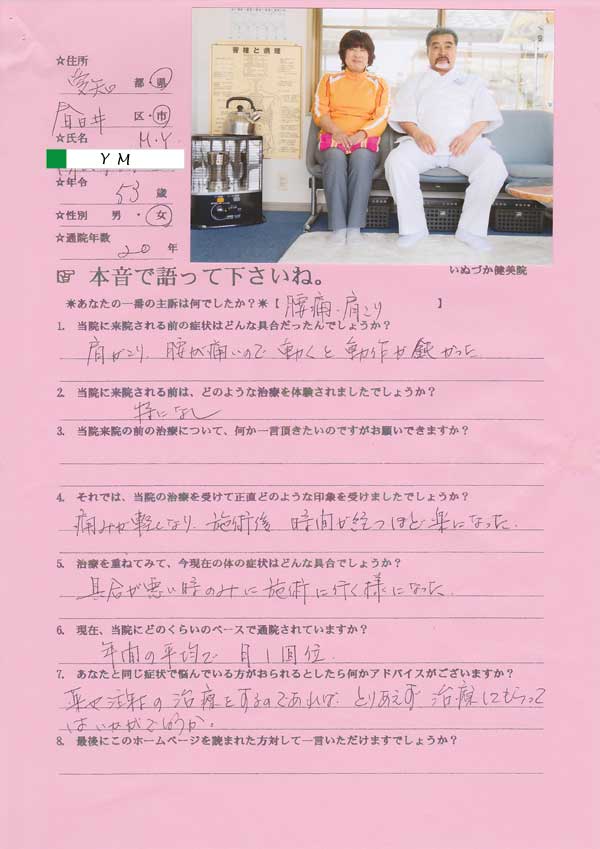 ☆住所
愛知 都・県
春日井 区・市
☆氏名 M.Y
Y M
☆年令
53 歳
☆性別 男・女
☆通院年数
20 年
皆種と病種
いぬづか健美院
☞ 本音で語って下さいね。
＊あなたの一番の主訴は何でしたか？＊【 腰痛・肩こり 】
1. 当院に来院される前の症状はどんな具合だったんでしょうか？
肩がこり、腰が痛いので動くと動作が鈍かった
2. 当院に来院される前は、どのような治療を体験されましたでしょうか？
特になし
3. 当院来院の前の治療について、何か一言頂きたいのですがお願いできますか？
4. それでは、当院の治療を受けて正直どのような印象を受けましたでしょうか？
痛みが軽くなり、施術後 時間が経つほど楽になった.
5. 治療を重ねてみて、今現在の体の症状はどんな具合でしょうか？
具合が悪い時のみに施術に行く様になった.
6. 現在、当院にどのくらいのペースで通院されていますか？
年間の平均で 月1回位.
7. あなたと同じ症状で悩んでいる方がおられるとしたら何かアドバイスがございますか？
薬や注射の治療をするのであれば、とりあえず 治療してもらって
はいかがでしょうか。
8. 最後にこのホームページを読まれた方対して一言いただけますでしょうか？